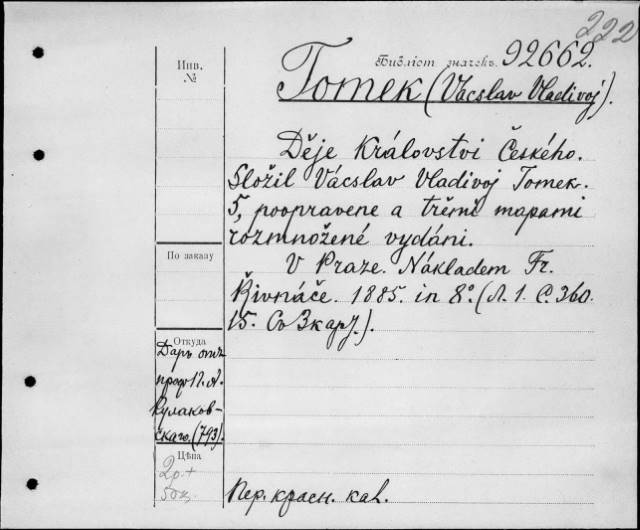 222
Библіот. значекъ 92662.
Инв.
№
Tomek (Vácslav Vladivoj).
Děje Královstvi Českého.
Složil Vácslav Vladivoj Tomek.
5, poopravene a třěmi mapami
rozmnožené vydáni.
V Praze. Nákladem Fr.
Řivnáče. 1885. in 8º. (Л. 1. С. 360.
15. Съ 3 кар.).
По заказу
Откуда
Даръ отъ
проф П. А.
Кулаков-
скаго. (793).
Цѣна
2р. +
50к.
Пер. красн. кал.